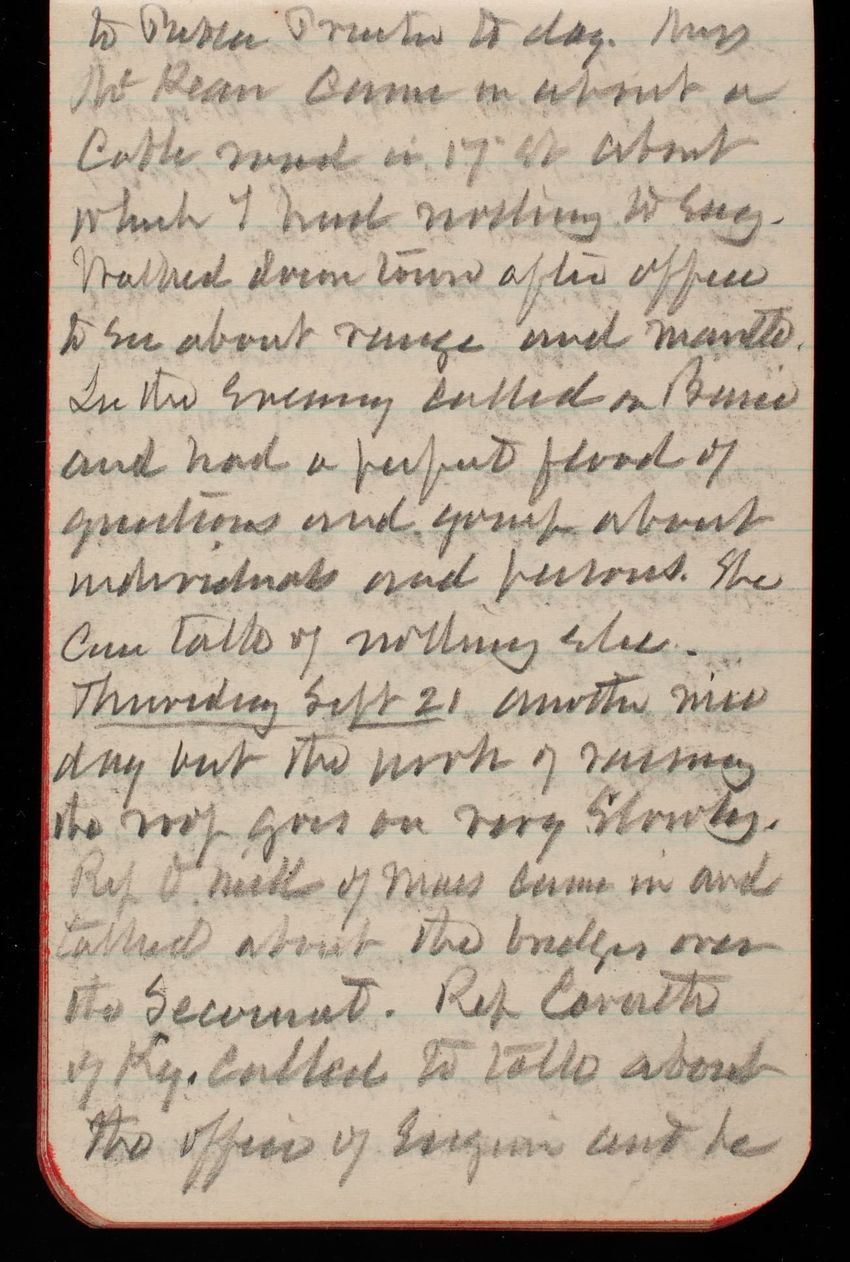 to Public Printer to day. Miss
McKean came in about a
Cable road in 17 St about
which I had nothing to say.
Walked down town after office
to see about range and mantle.
In the evening called on
and had a perfect flood of
questions and gossip about
individuals and persons. She
can talk of nothing else.
Thursday Sept 21 another nice
day but the work of raising
the roof goes on very slowly.
Rep O'Neill of Mass came in and
talked about the bridges over
the. Rep
of Ky. called to talk about
the office of and he